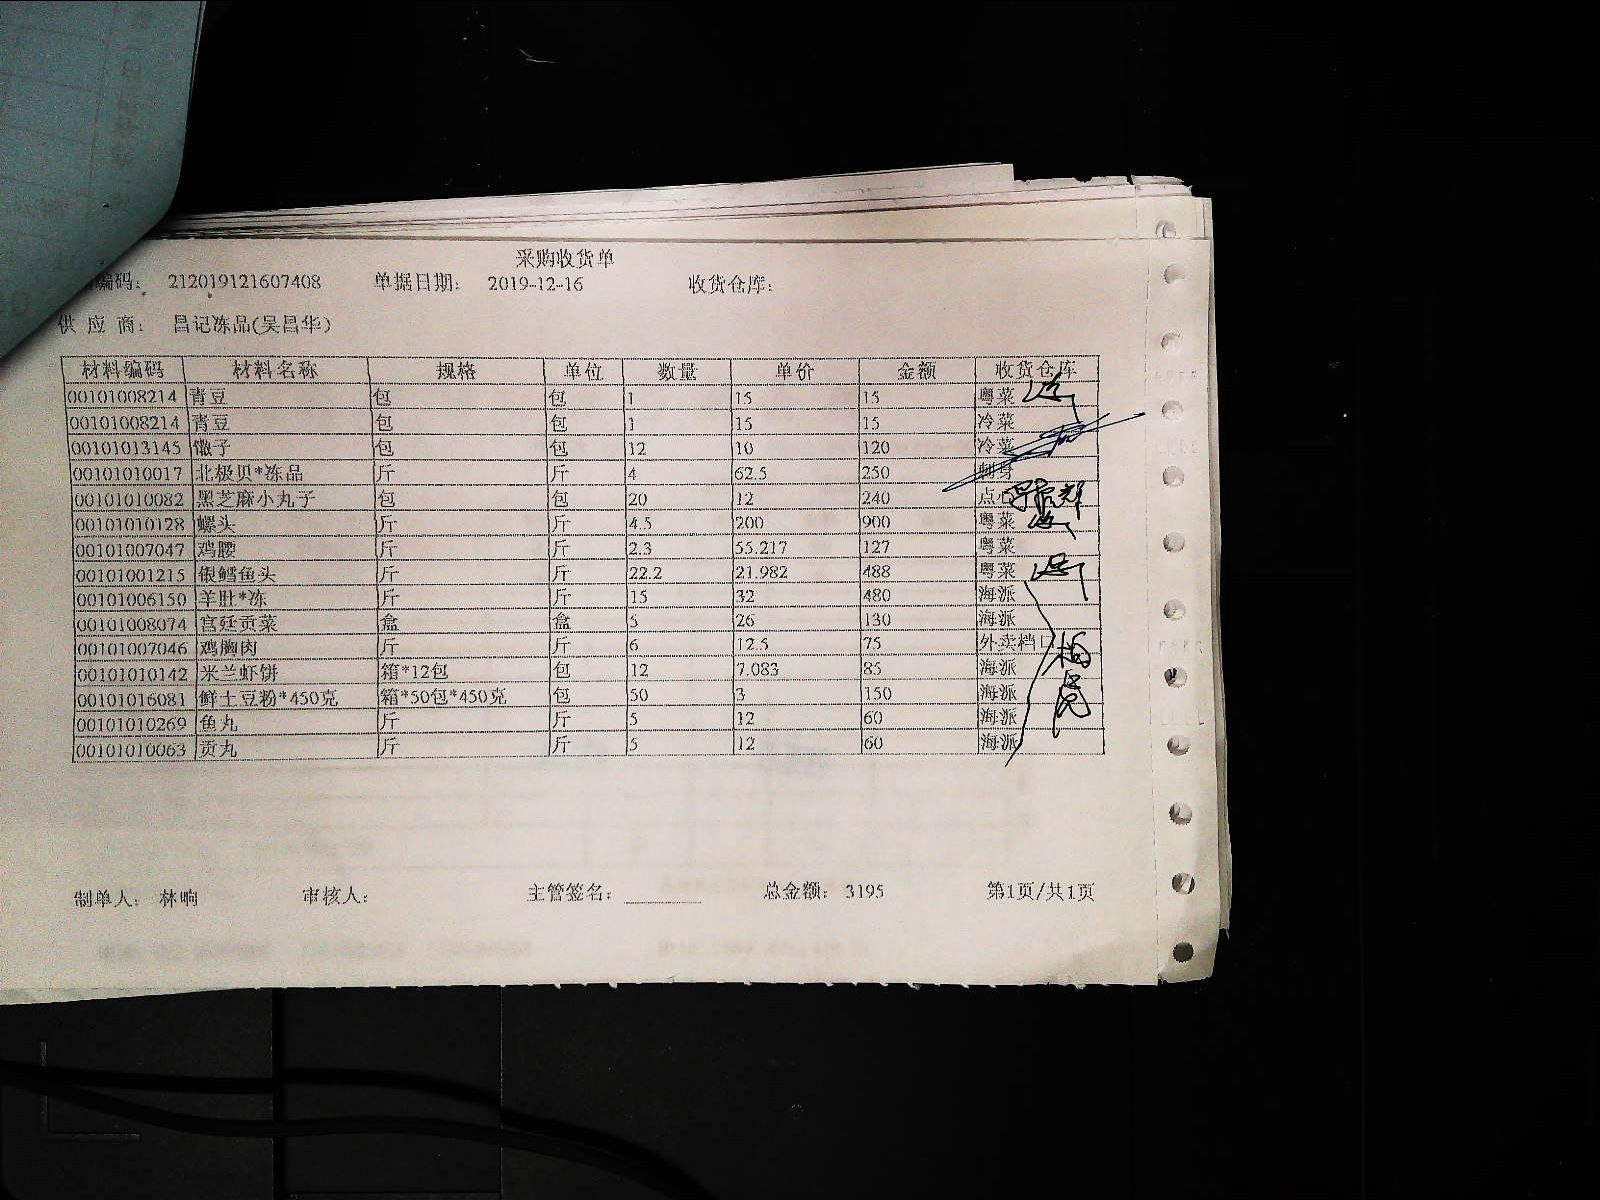 采购收货单
编码： 212019121607408 单据日期： 2019-12-16 收货仓库：
供 应 商： 昌记冻品(吴昌华)
材料编码 材料名称 规格 单位 数量 单价 金额 收货仓库
00101008214 青豆 包 包 1 15 15 粤菜
00101008214 青豆 包 包 1 15 15 冷菜
00101013145 馓子 包 包 12 10 120 冷菜
00101010017 北极贝*冻品 斤 斤 4 62.5 250 刺身
00101010082 黑芝麻小丸子 包 包 20 12 240 点心
00101010128 螺头 斤 斤 4.5 200 900 粤菜
00101007047 鸡腰 斤 斤 2.3 55.217 127 粤菜
00101001215 银鳕鱼头 斤 斤 22.2 21.982 488 粤菜
00101006150 羊肚*冻 斤 斤 15 32 480 海派
00101008074 宫廷贡菜 盒 盒 5 26 130 海派
00101007046 鸡胸肉 斤 斤 6 12.5 75 外卖档口
00101010142 米兰虾饼 箱*12包 包 12 7.083 85 海派
00101016081 鲜土豆粉*450克 箱*50包*450克 包 50 3 150 海派
00101010269 鱼丸 斤 斤 5 12 60 海派
00101010063 贡丸 斤 斤 5 12 60 海派
制单人： 林响 审核人： 主管签名： 总金额： 3195 第1页/共1页